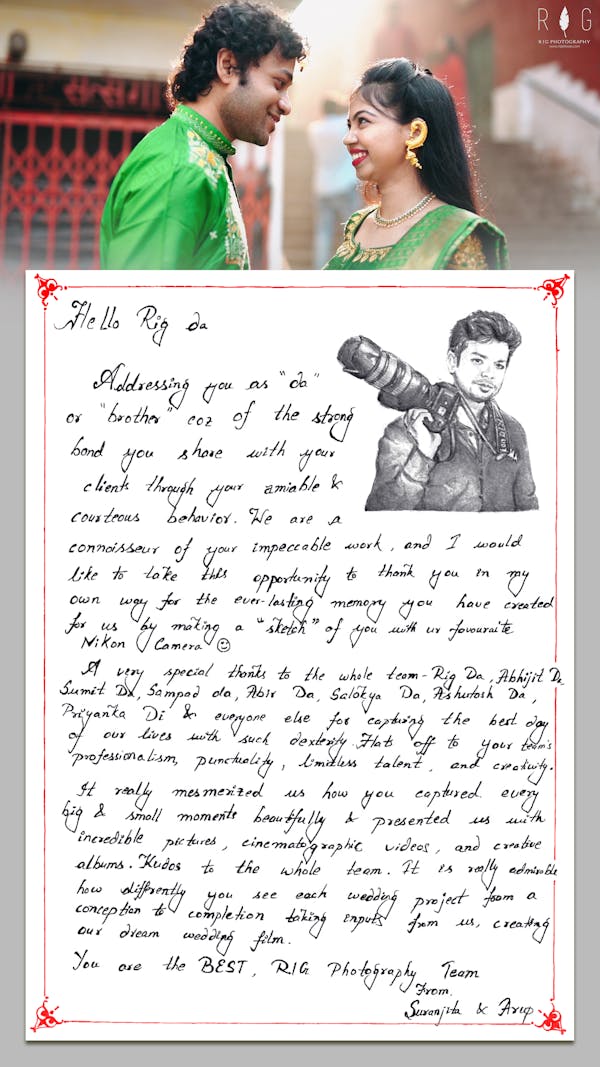 R I G
RIG PHOTOGRAPHY
सत्संग
Hello Rig da
Addressing you as "da"
or "brother" coz of the strong
bond you share with your
clients through your amiable &
courteous behavior. We are a
connoisseur of your impeccable work, and I would
like to take this opportunity to thank you in my
own way for the ever-lasting memory you have created
for us by making a "sketch" of you with ur favouraite
Nikon Camera ☺
A very special thanks to the whole team - Rig Da, Abhijit Da
Sumit Da, Sampad da, Abir Da, Salokya Da, Ashutosh Da,
Priyanka Di & everyone else for capturing the best day
of our lives with such dexterity. Hats off to your team's
professionalism, punctuality, limitless talent, and creativity.
It really mesmerized us how you captured every
big & small moments beautifully & presented us with
incredible pictures, cinematographic videos, and creative
albums. Kudos to the whole team. It is really admirable
how differently you see each wedding project from a
conception to completion taking inputs from us, creating
our dream wedding film.
You are the BEST, RIG Photography Team
From,
Suranjita & Arup